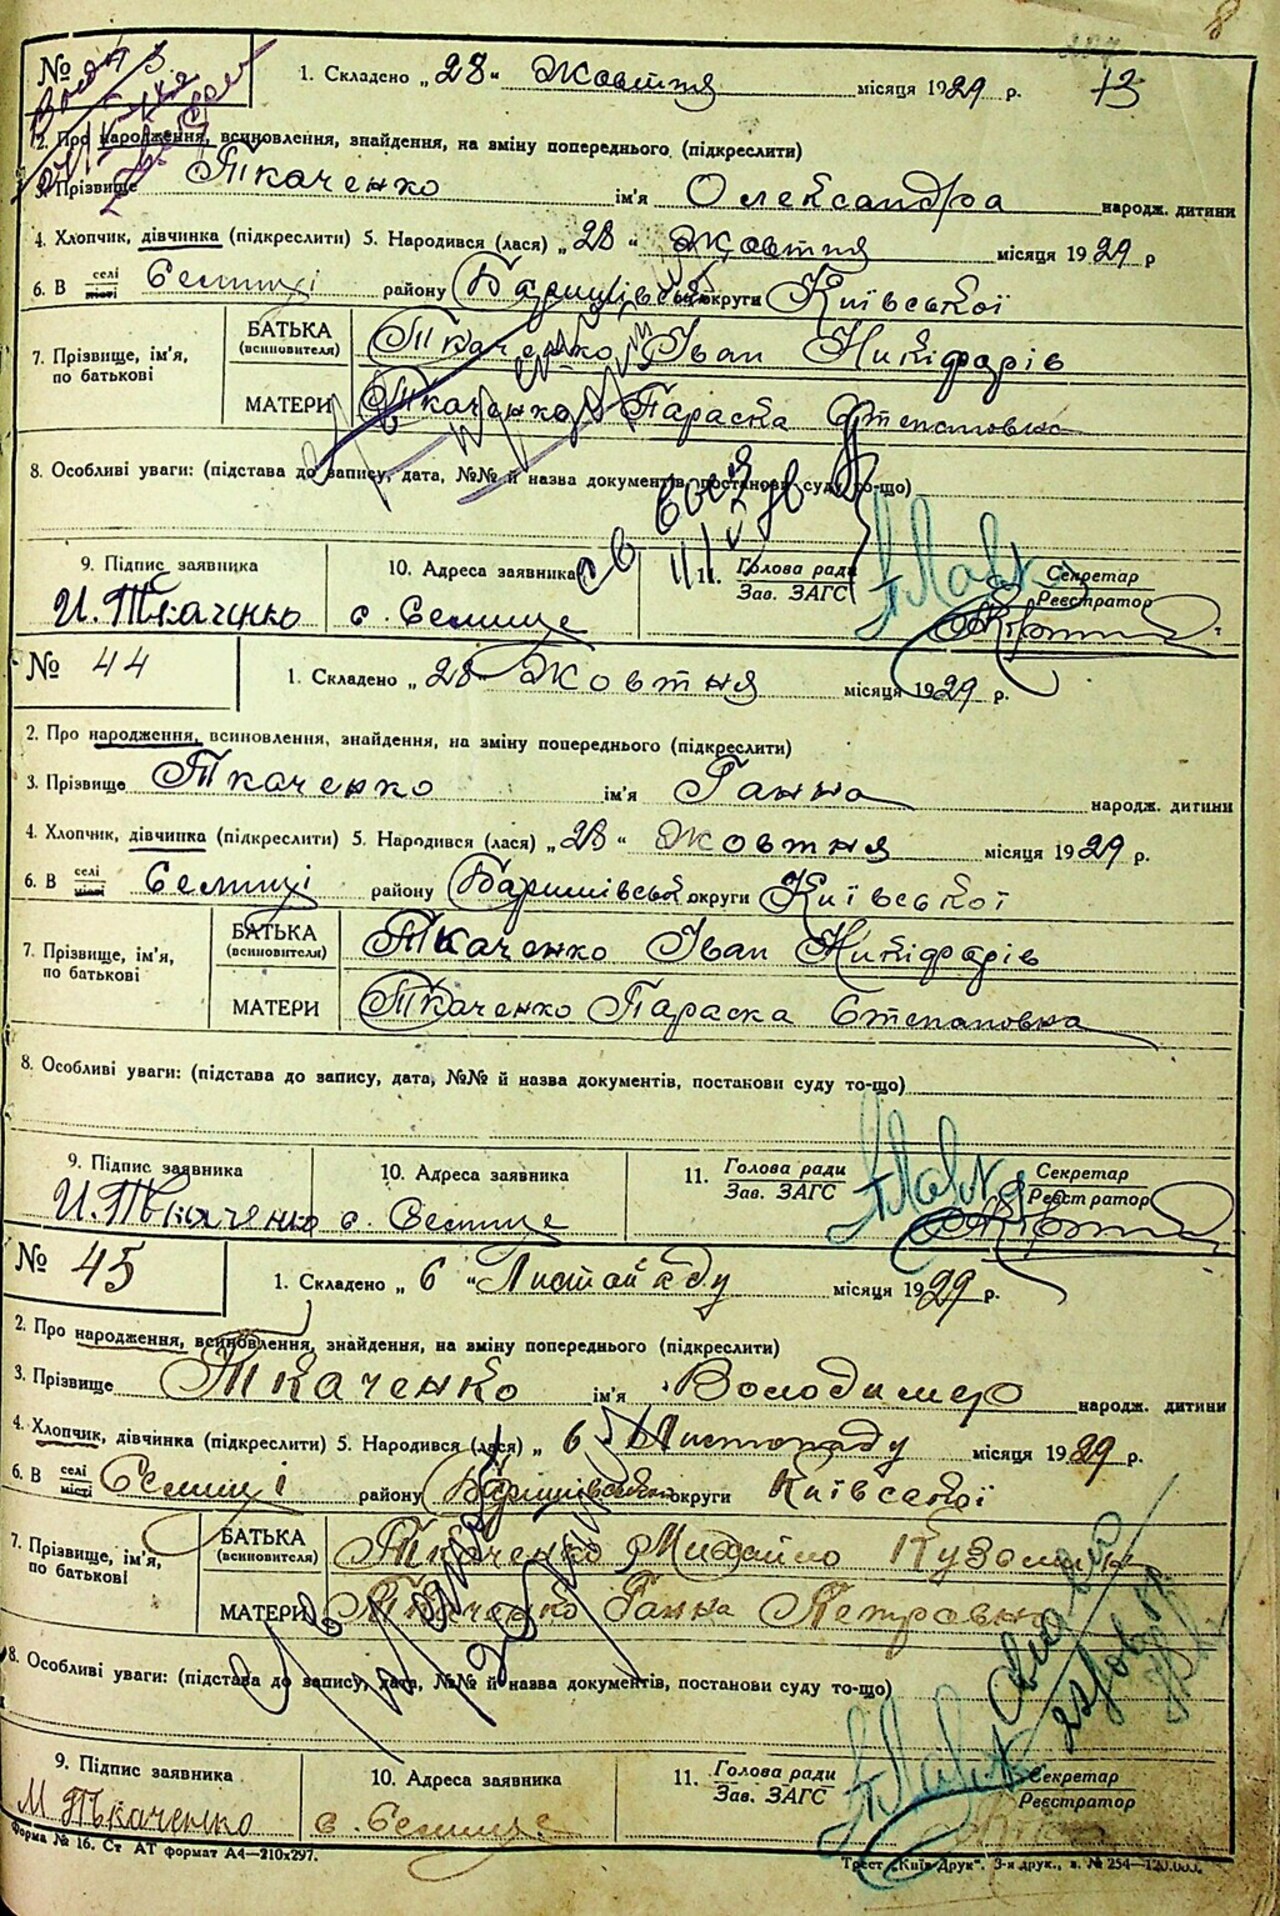 8
13
№
1. Складено „28“ Жовтня місяця 1929 р.
2. Про народження, всиновлення, знайдення, на зміну попереднього (підкреслити)
3. Прізвище Ткаченко ім'я Олександра народж. дитини
4. Хлопчик, дівчинка (підкреслити) 5. Народився (лася) „28“ Жовтня місяця 1929 р
6. В селі місті Селищі району Баришівської округи Київської
7. Прізвище, ім'я, по батькові
БАТЬКА (всиновителя) Ткаченко Іван Никіфорів
МАТЕРИ Ткаченко Параска Степановна
8. Особливі уваги: (підстава до запису, дата, №№ й назва документів, постанови суду то-що)
9. Підпис заявника 10. Адреса заявника 11. Голова ради Зав. ЗАГС Секретар Реєстратор
И. Ткаченко с. Селище
№ 44
1. Складено „28“ Жовтня місяця 1929 р.
2. Про народження, всиновлення, знайдення, на зміну попереднього (підкреслити)
3. Прізвище Ткаченко ім'я Ганна народж. дитини
4. Хлопчик, дівчинка (підкреслити) 5. Народився (лася) „28“ Жовтня місяця 1929 р.
6. В селі місті Селищі району Баришівської округи Київської
7. Прізвище, ім'я, по батькові
БАТЬКА (всиновителя) Ткаченко Іван Никіфорів
МАТЕРИ Ткаченко Параска Степановна
8. Особливі уваги: (підстава до запису, дата, №№ й назва документів, постанови суду то-що)
9. Підпис заявника 10. Адреса заявника 11. Голова ради Зав. ЗАГС Секретар Реєстратор
И. Ткаченко с. Селище
№ 45
1. Складено „6“ Листопаду місяця 1929 р.
2. Про народження, всиновлення, знайдення, на зміну попереднього (підкреслити)
3. Прізвище Ткаченко ім'я Володимер народж. дитини
4. Хлопчик, дівчинка (підкреслити) 5. Народився (лася) „6“ Листопаду місяця 1929 р.
6. В селі місті Селищі району Баришівської округи Київської
7. Прізвище, ім'я, по батькові
БАТЬКА (всиновителя) Ткаченко Михайло
МАТЕРИ Ткаченко Ганна Петровна
8. Особливі уваги: (підстава до запису, дата, №№ й назва документів, постанови суду то-що)
9. Підпис заявника 10. Адреса заявника 11. Голова ради Зав. ЗАГС Секретар Реєстратор
М Ткаченко с. Селище
Форма № 16. Ст АТ формат А4—210х297.
Трест „Київ-Друк“. 3-я друк., з. № 254—120.000.